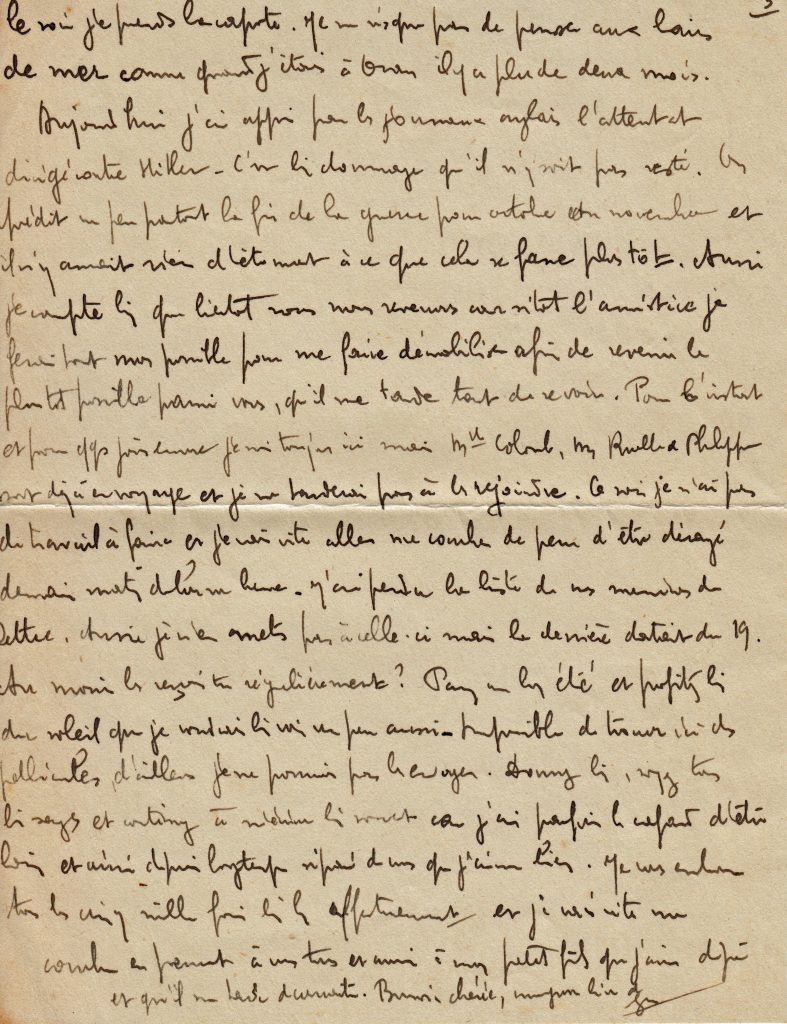 3
le soir je prends la capote. Je ne risque pas de penser aux bains
de mer comme quand j'étais à Oran il y a plus de deux mois.
Aujourd'hui j'ai appris par les journaux anglais l'attentat
dirigé contre Hitler - C'est bien dommage qu'il n'y soit pas resté. On
prédit un peu partout la fin de la guerre pour octobre ou novembre et
il n'y aurait rien d'étonnant à ce que cela se fasse plus tôt. Aussi
je compte bien que bientôt nous nous reverrons car sitôt l'armistice je
ferai tout mon possible pour me faire démobiliser afin de revenir le
plus tôt possible parmi vous, qu'il me tarde tant de revoir. Pour l'instant
et pour qqs jours encore je suis toujours ici mais Colomb, Philippe
sont déjà en voyage et je ne tarderai pas à les rejoindre. Ce soir je n'ai pas
de travail à faire et je vais vite aller me coucher de peur d'être dérangé
demain matin de bonne heure - J'ai perdu la liste de nos numéros de
lettre. Aussi je n'en mets pas à celle-ci mais la dernière datait du 19.
Au moins les reçois-tu régulièrement? Passez un bon été et profitez bien
du soleil que je voudrais bien voir un peu aussi - Impossible de trouver ici des
pellicules d'ailleurs je ne pourrais pas les envoyer. Donnez bien, soyez tous
bien sages et continuez à m'écrire bien souvent car j'ai parfois le cafard d'être
loin et ainsi depuis longtemps séparé de vous que j'aime bien. Je vous embrasse
tous les cinq mille fois bien affectueusement et je vais vite me
coucher en pensant à vous tous et aussi à mon petit fils que j'aime déjà
et qu'il me tarde de connaître. Bonsoir chérie,